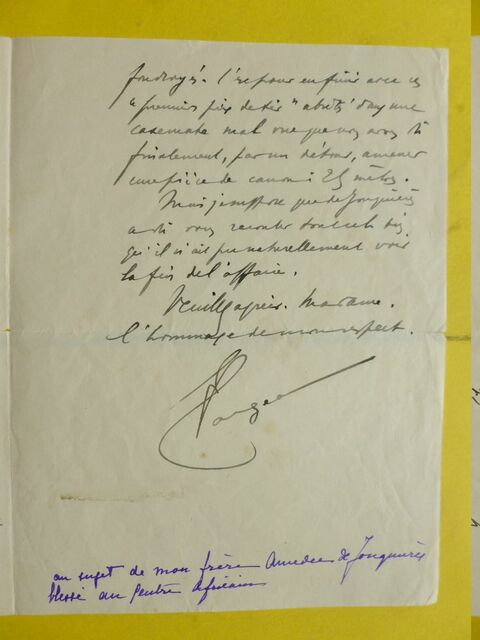 foudroyés. C'est pour en finir avec ces
"premiers prix de tir" abrités dans une
casemate mal vue que nous avons dû
finalement, par un détour, amener
une pièce de canon à 25 mètres.
Mais je suppose que de Jonquières
a dû vous raconter tout cela
qu'il n'ait pu naturellement voir
la fin de l'affaire.
Veuillez agréer, Madame,
l'hommage de mon respect.
au sujet de mon frère Amédée de Jonquières
blessé au Centre Africain